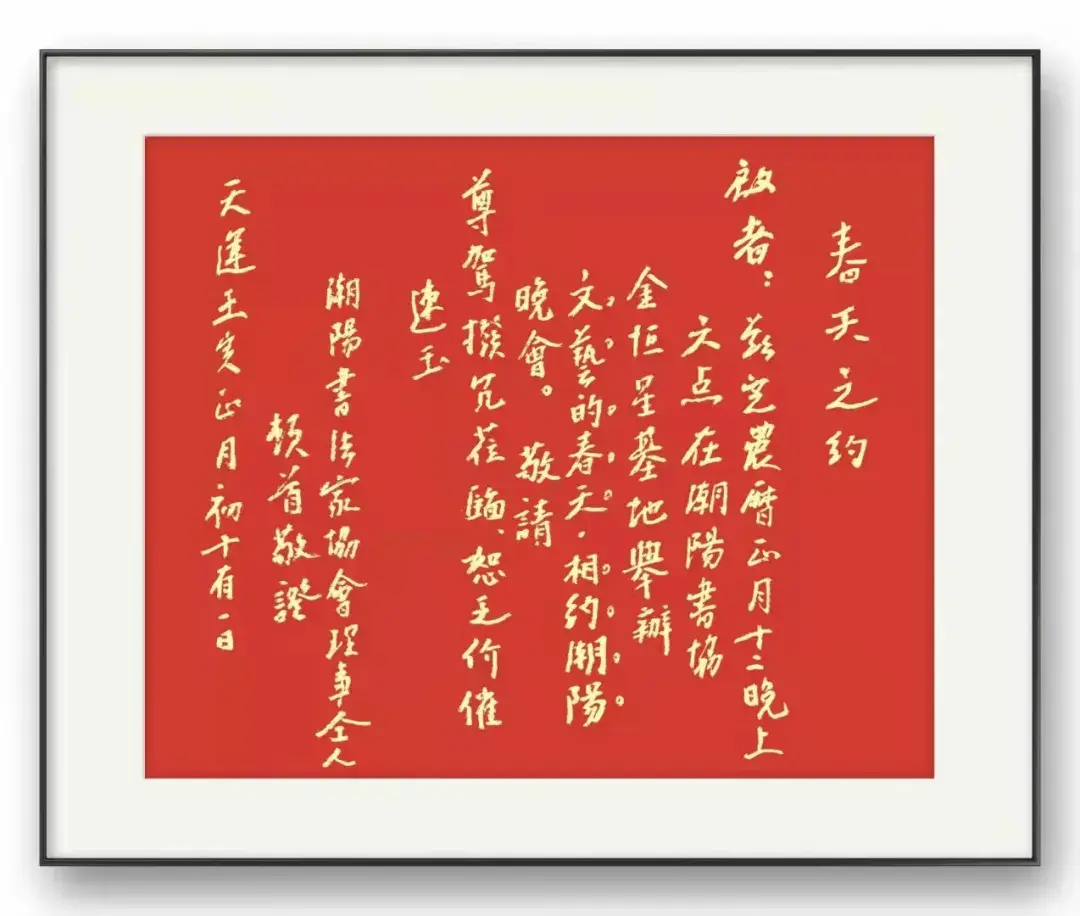 春天之约
啟者：茲定農曆正月十二晚上
六点在潮陽書協
金恒星基地舉辦
文藝的春天·相约潮陽
晚會。敬請
尊駕撥冗蒞臨、恕乏价催
速玉
潮陽書法家協會理事仝人
頓首敬證
天運壬寅正月初十有一日